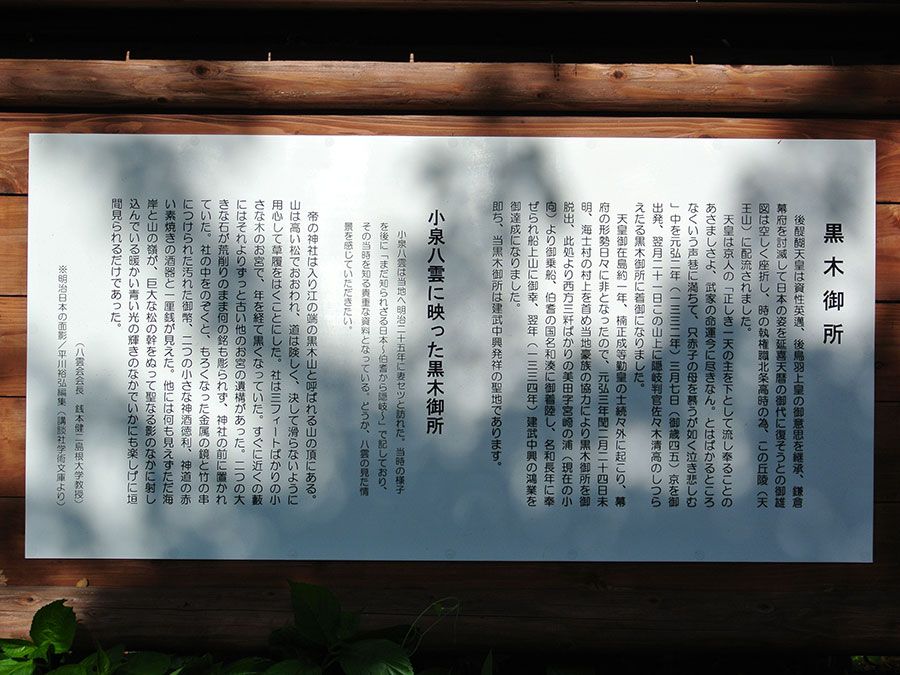 黒木御所
後醍醐天皇は資性英邁、後鳥羽上皇の御意思を継承、鎌倉
幕府を討滅して日本の姿を延喜天暦の御代に復そうとの御雄
図は空しく座折し、時の執権職北条高時の為、この丘陵（天
王山）に配流されました。
天皇は京人の「正しき一天の主を下として流し奉ることの
あさましさよ、武家の命運今に尽きなん。とはばかるところ
なくいう声巷に満ちて、只赤子の母を慕うが如く泣き悲しむ
」中を元弘二年（一三三二年）三月七日（御歳四五）京を御
出発、翌月二十一日この山上に隠岐判官佐々木清高のしつら
えたる黒木御所に着御になりました。
天皇御在島約一年、楠正成等勤皇の士続々外に起こり、幕
府の形勢日々に非となったので、元弘三年閏二月二十四日未
明、海士村の村上を首め当地豪族の協力により黒木御所を御
脱出、此処より西方三粁ばかりの美田字宮崎の浦（現在の小
向）より御乗船、伯耆の国名和湊に御着陸し、名和長年に奉
ぜられ船上山に御幸、翌年（一三三四年）建武中興の鴻業を
御達成になりました。
即ち、当黒木御所は建武中興発祥の聖地であります。
小泉八雲に映った黒木御所
小泉八雲は当地へ明治二十五年に妻セツと訪れた。当時の様子
を後に「まだ知られざる日本〜伯耆から隠岐〜」で記しており、
その当時を知る貴重な資料となっている。どうか、八雲の見た情
景を感じていただきたい。
帝の神社は入り江の端の黒木山と呼ばれる山の頂にある。
山は高い松でおおわれ、道は険しく、決して滑らないように
用心して草履をはくことにした。社は三フィートばかりの小
さな木のお宮で、年を経て黒くなっていた。すぐに近くの藪
にはそれよりずっと古い他のお宮の遺構があった。二つの大
きな石が荒削りのまま何の銘も彫られず、神社の前に置かれ
ていた。社の中をのぞくと、もろくなった金属の鏡と竹の串
につけられた汚れた御幣、二つの小さな神酒徳利、神道の赤
い素焼きの酒器と一厘銭が見えた。他には何も見えずただ海
岸と山の嶺が、巨大な松の幹をぬって聖なる影のなかに射し
込んでいる暖かい青い光の輝きのなかでいかにも楽しげに垣
間見られるだけであった。
（八雲会会長　銭本健二島根大学教授）
※明治日本の面影／平川祐弘編集（講談社学術文庫より）